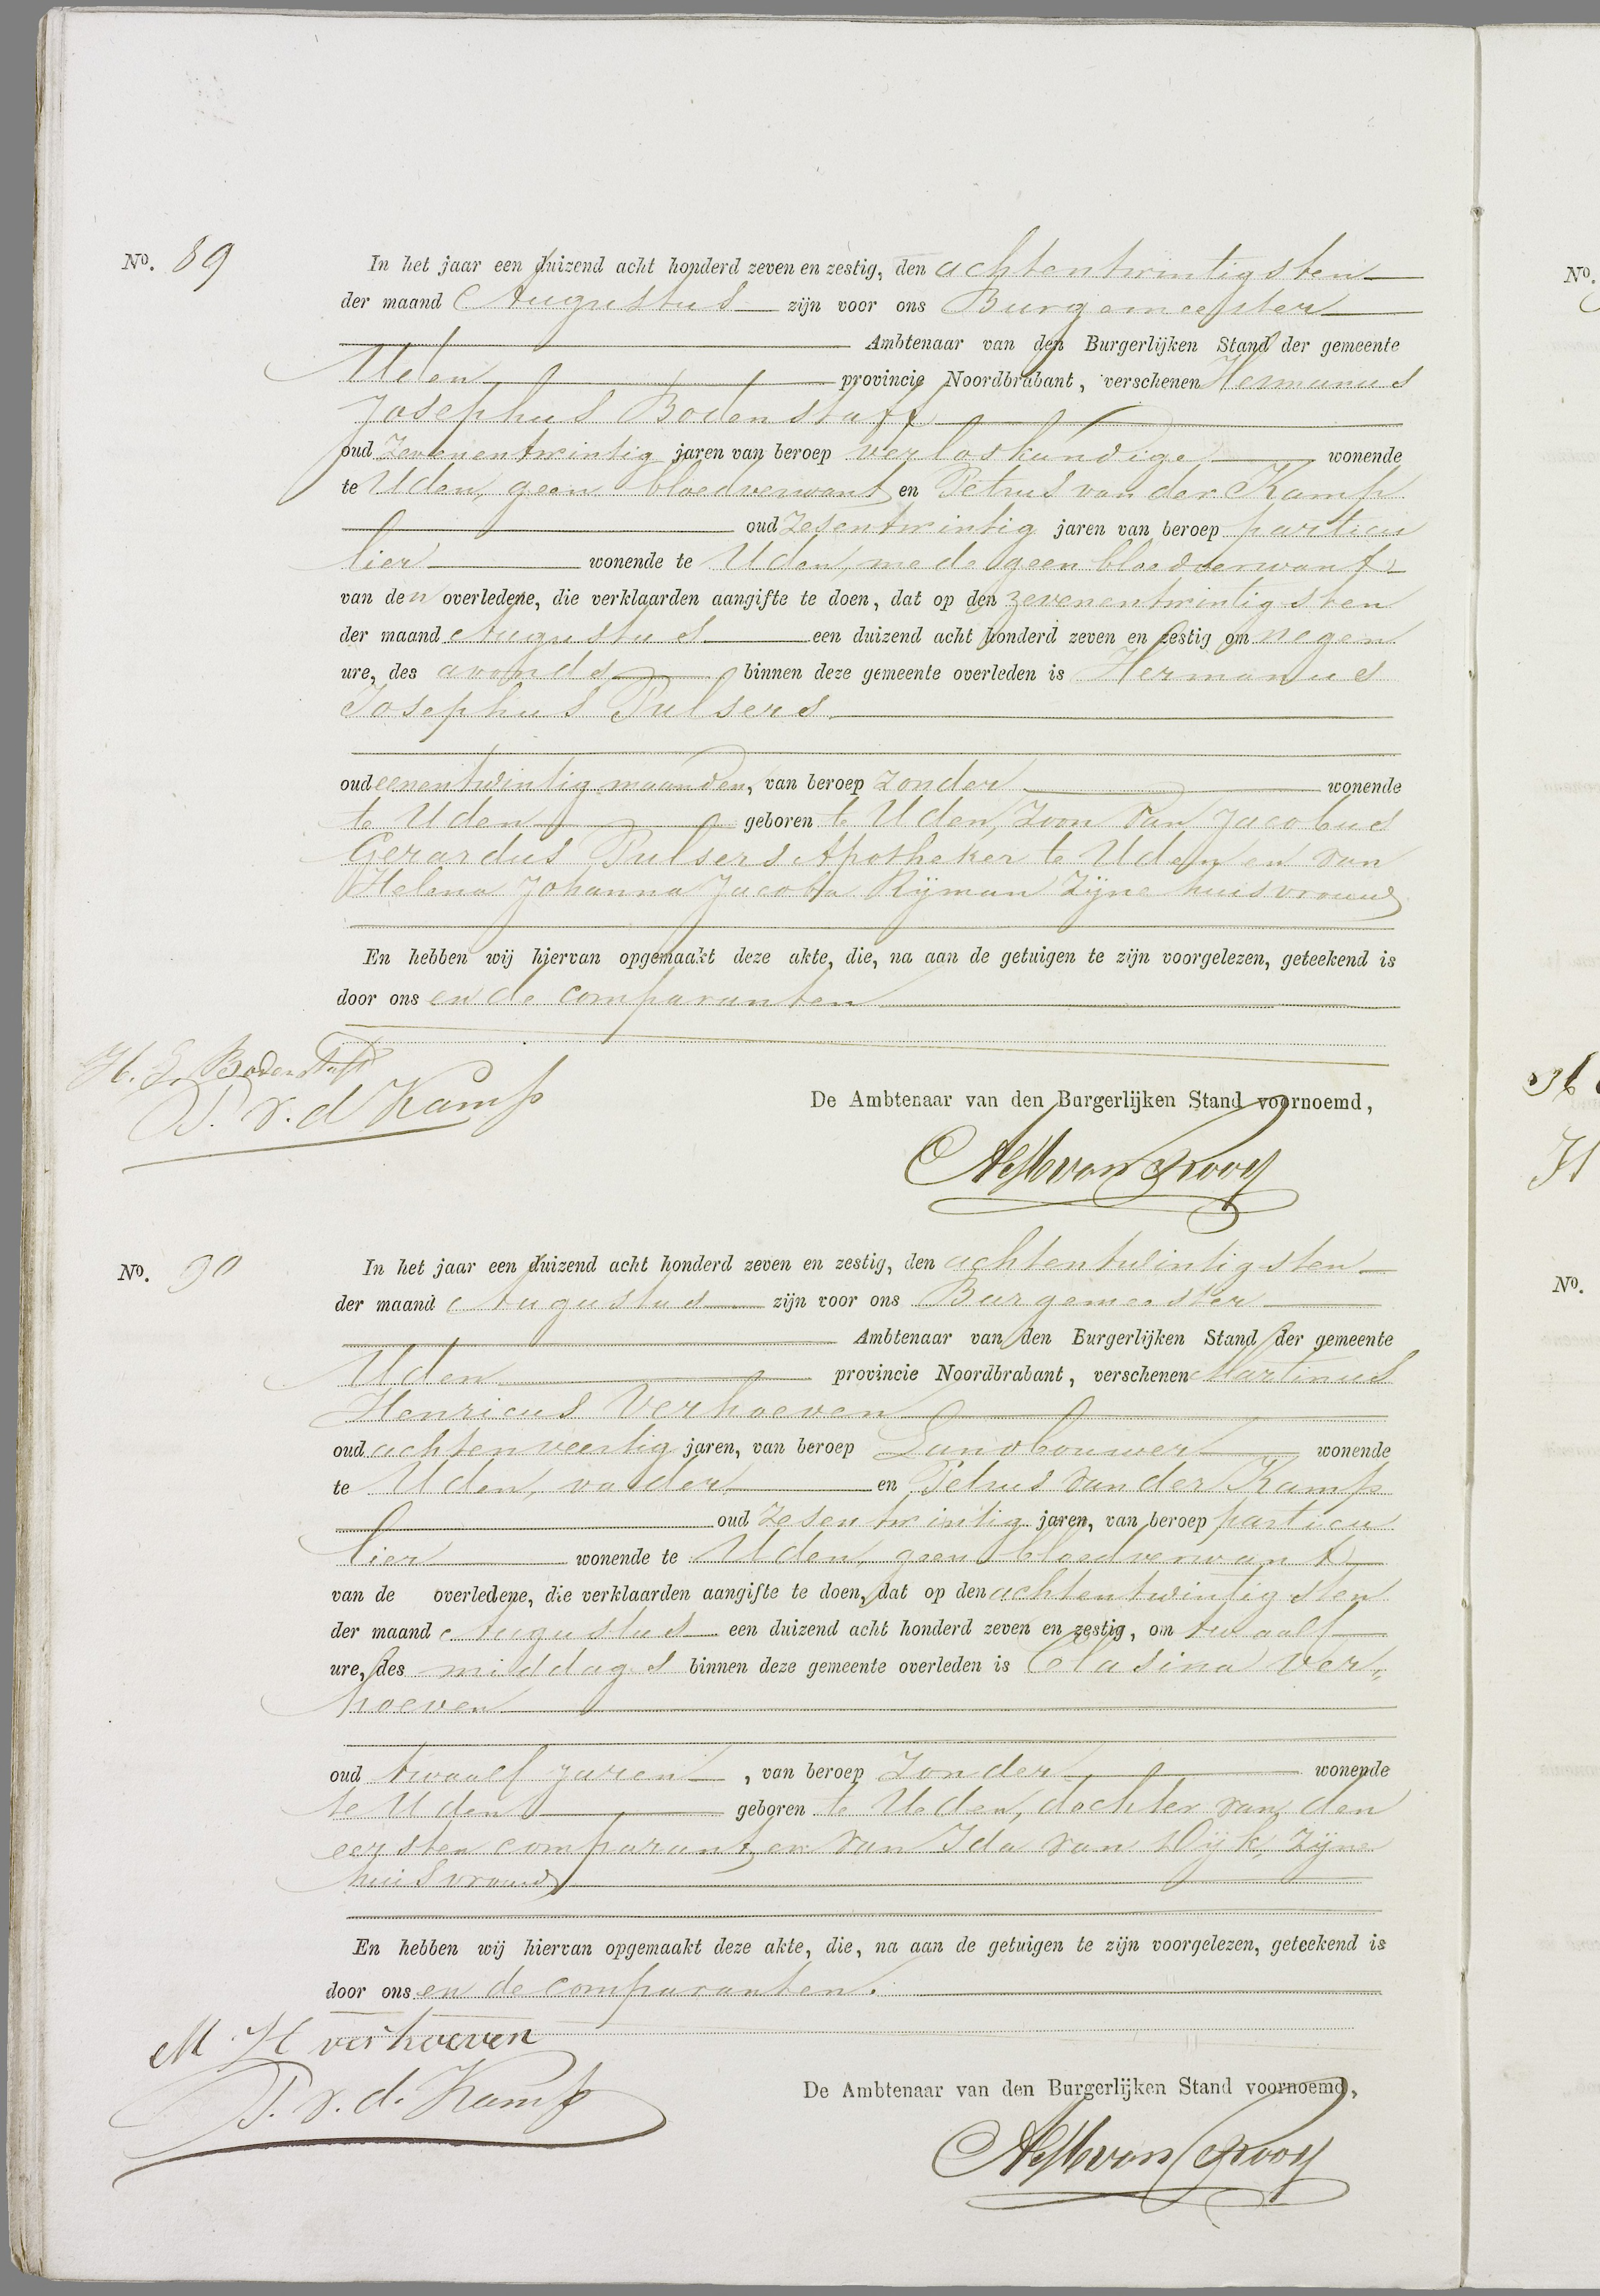 No. 89
In het jaar een duizend acht honderd zeven en zestig, den achtentwintigsten
der maand Augustus zijn voor ons Burgemeester
Ambtenaar van den Burgerlijken Stand der gemeente
Uden provincie Noordbrabant, verschenen Hermanus
Josephus Bodenstaff
oud zevenentwintig jaren van beroep verloskundige wonende
te Uden, geen bloedverwant en Petrus van der Kamp
oud zesentwintig jaren van beroep particu
lier wonende te Uden, mede geen bloedverwant
van den overledene, die verklaarden aangifte te doen, dat op den zevenentwintigsten
der maand Augustus een duizend acht honderd zeven en zestig om negen
ure, des avonds binnen deze gemeente overleden is Hermanus
Josephus Pulsers
oud eenentwintig maanden, van beroep zonder wonende
te Uden geboren te Uden, zoon van Jacobus
Gerardus Pulsers Apotheker te Uden en van
Helena Johanna Jacoba Rijman zijne huisvrouw
En hebben wij hiervan opgemaakt deze akte, die, na aan de getuigen te zijn voorgelezen, geteekend is
door ons en de comparanten
H. J. Bodenstaff
P. v. d Kamp
De Ambtenaar van den Burgerlijken Stand voornoemd,
No. 90
In het jaar een duizend acht honderd zeven en zestig, den achtentwintigsten
der maand Augustus zijn voor ons Burgemeester
Ambtenaar van den Burgerlijken Stand der gemeente
Uden provincie Noordbrabant, verschenen Martinus
Henricus Verhoeven
oud achtenveertig jaren, van beroep Landbouwer wonende
te Uden, vader en Petrus van der Kamp
oud zesentwintig jaren, van beroep particu
lier wonende te Uden, geen bloedverwant
van de overledene, die verklaarden aangifte te doen, dat op den achtentwintigsten
der maand Augustus een duizend acht honderd zeven en zestig, om twaalf
ure, des middags binnen deze gemeente overleden is Clasina Ver-
hoeven
oud twaalf jaren, van beroep zonder wonende
te Uden geboren te Uden, dochter van den
eersten comparant en van Ida van Dijk, zijne
huisvrouw
En hebben wij hiervan opgemaakt deze akte, die, na aan de getuigen te zijn voorgelezen, geteekend is
door ons en de comparanten.
M H verhoeven
P. v. d. Kamp
De Ambtenaar van den Burgerlijken Stand voornoemd,
No.
No.